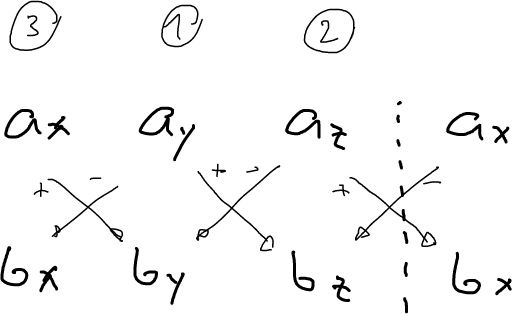 3 1 2
ax ay az ax
+ - + - + -
bx by bz bx